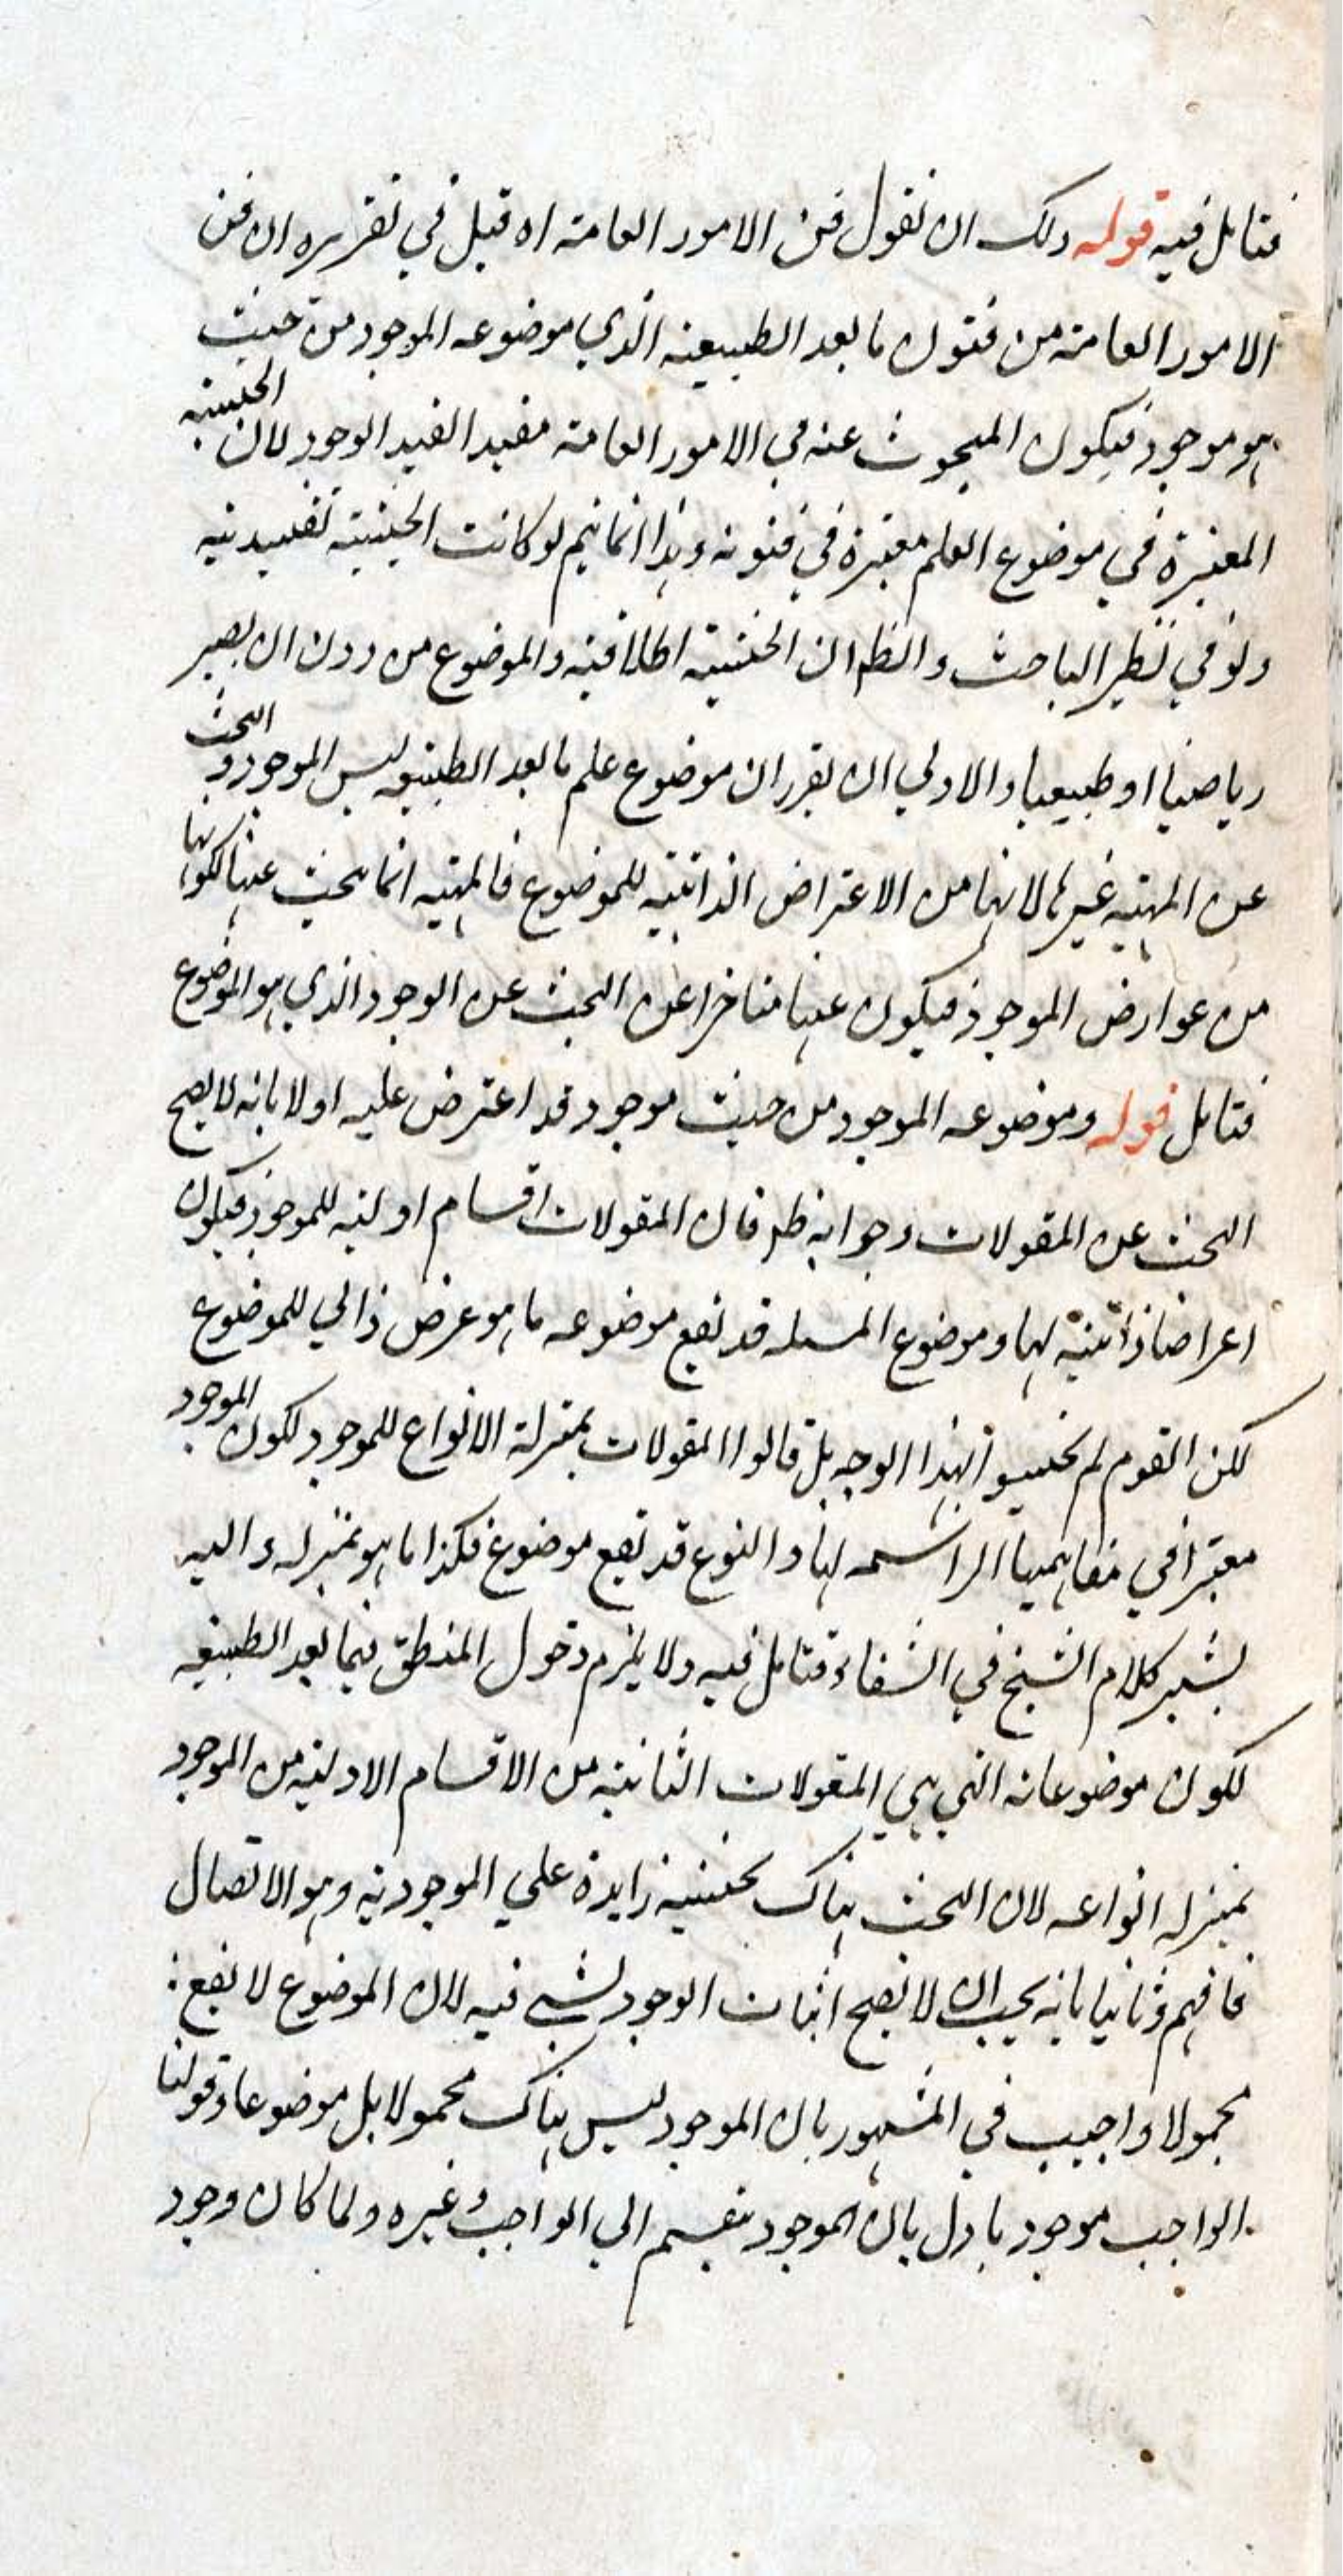 فتامل فيه قوله ولك ان نقول فن الامور العامة اه قيل في تقريره ان فن
الامور العامة من فنون ما بعد الطبيعية الذي موضوعه الموجود من حيث
هو موجود فيكون المبحوث عنه في الامور العامة مقيدا بقيد الوجود لان الحيثية
المعتبرة في موضوع العلم معتبرة في فنونه وهذا انما يتم لو كانت الحيثية تقييدية
ولو في نظر الباحث والظم ان الحيثية اطلاقية والموضوع من دون ان يصير
رياضيا او طبيعيا والاولي ان يقرر ان موضوع علم ما بعد الطبيعة ليس الموجود والبحث
عن المهية غيرها لانها من الاعتراض الذاتية للموضوع فالمهية انما يبحث عنها لكونها
من عوارض الموجود فيكون عنها متاخرا عن البحث عن الوجود الذي هو الموضوع
فتامل قوله وموضوعه الموجود من حيث موجود قد اعترض عليه اولا بانه لا يصح
البحث عن المقولات وجوابه ظم فان المقولات اقسام اولية للموجود فيكون
اعراضا ذاتية لها وموضوع المسله قد تقع موضوعه ما هو عرض ذاتي للموضوع
لكن القوم لم يجيبوا بهذا الوجه بل قالوا المقولات بمنزلة الانواع للموجود لكون الموجود
معتبرا في مفاهيمها الراسمه لها والنوع قد تقع موضوع فكذا ما هو بمنزله واليه
يشير كلام الشيخ في الشفاء فتامل فيه ولا يلزم دخول المنطق فيما بعد الطبيعه
لكون موضوعاته التي هي المقولات الثانية من الاقسام الاولية من الموجود
بمنزله انواعه لان البحث هناك بحيثية زايدة علي الموجودية وهو الاتصال
فافهم وثانيا بانه يجب ان لا يصح اثبات الوجود لشي فيه لان الموضوع لا يقع
محمولا واجيب في المشهور بان الموجود ليس هناك محمولا بل موضوعا وقولنا
الواجب موجود باول بان الموجود ينقسم الي الواجب وغيره ولما كان وجود